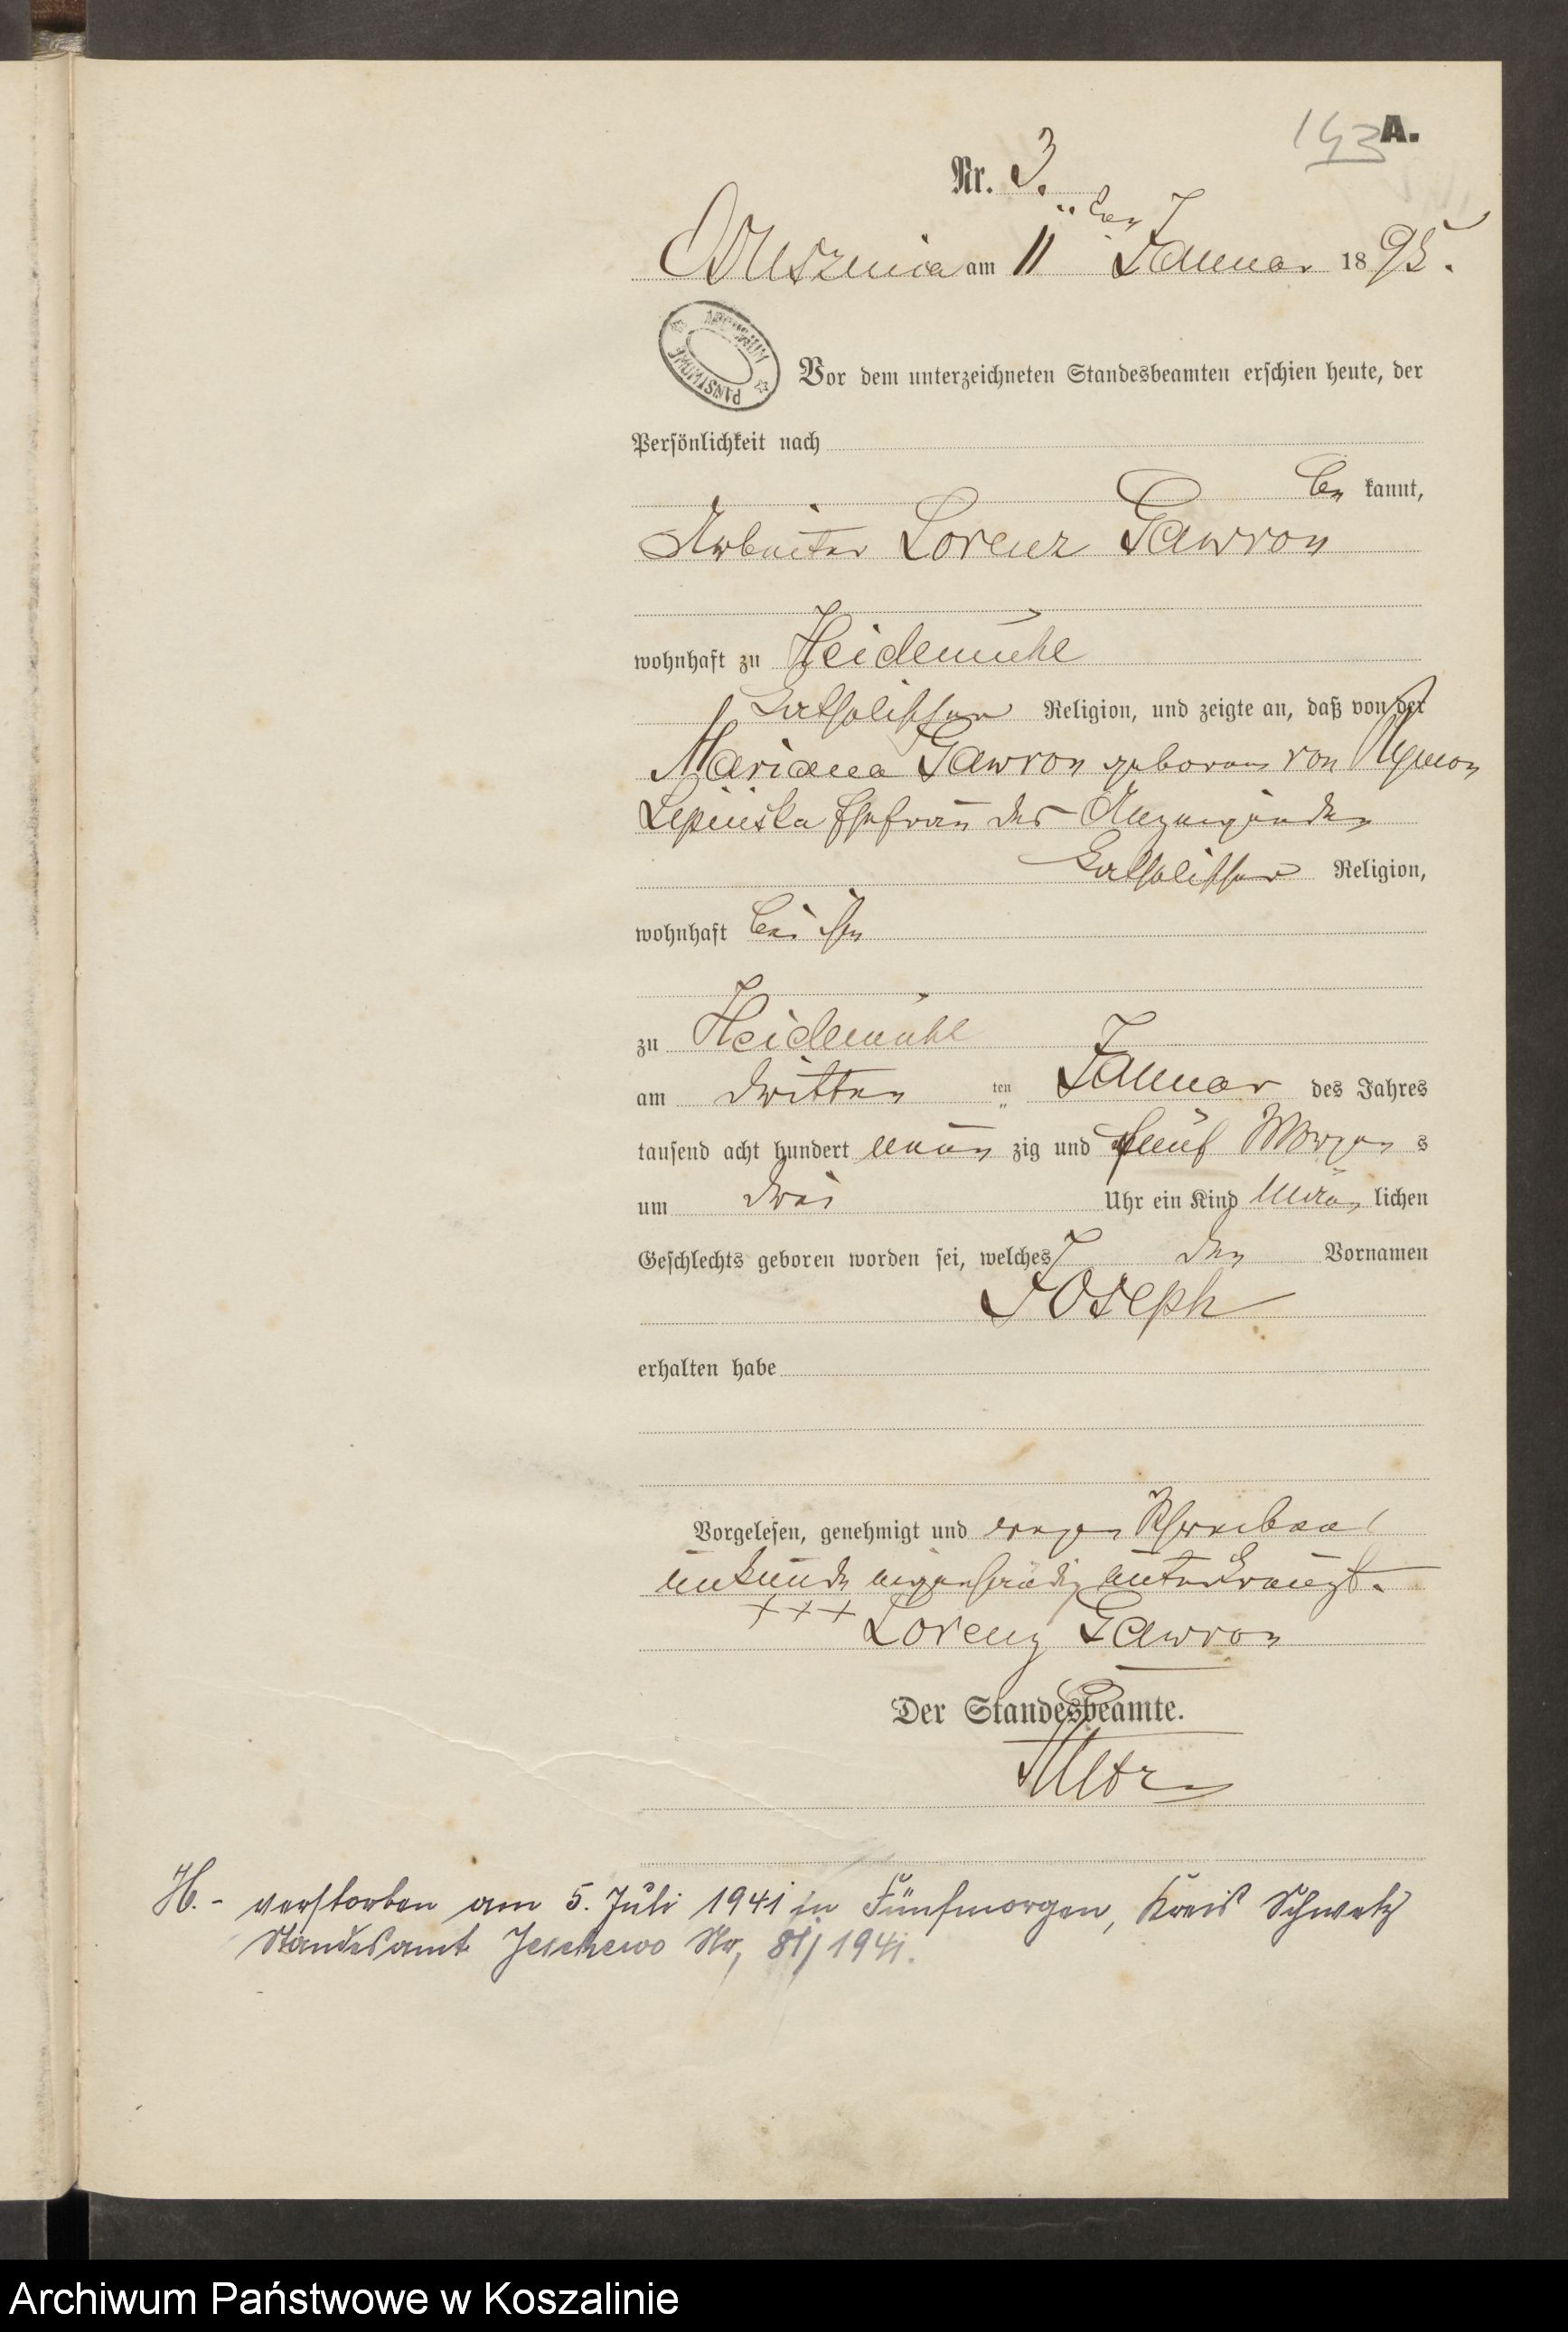 143 A.
Nr. 3.
am 11ten Januar 1895.
ARCHIWUM PAŃSTWOWE
Vor dem unterzeichneten Standesbeamten erschien heute, der
Persönlichkeit nach
be kannt,
Arbeiter Lorenz Gawron
wohnhaft zu Heidemühl
katholischer Religion, und zeigte an, daß von der
Mariana Gawron geborene von
Lepinska Ehefrau des Anzeigenden
katholischer Religion,
wohnhaft bei ihm
zu Heidemühl
am dritten ten Januar des Jahres
tausend acht hundert neun zig und fünf Morgen s
um drei Uhr ein Kind män lichen
Geschlechts geboren worden sei, welches den Vornamen
Joseph
erhalten habe
Vorgelesen, genehmigt und wegen Schreibens
unkunde eigenhändig unterkreuzt.
+++ Lorenz Gawron
Der Standesbeamte.
H. - verstorben am 5. Juli 1941 in Fünfmorgen, Kreis Schwetz
Standesamt Jeschewo Nr, 81/1941.
Archiwum Państwowe w Koszalinie